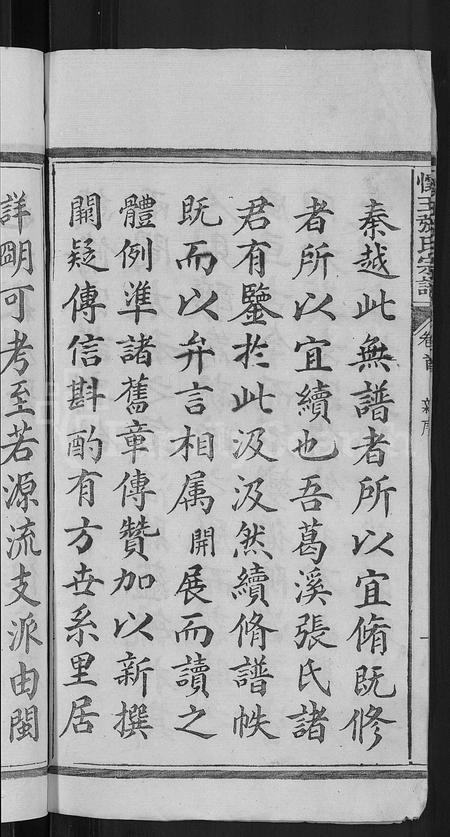 懷玉張氏宗譜 卷首 新序 一
秦越此無譜者所以宜脩既修
者所以宜續也吾葛溪張氏諸
君有鑒於此汲汲然續脩譜帙
既而以弁言相属開展而讀之
體例準諸舊章傳贊加以新撰
闕疑傳信斟酌有方世系里居
詳明可考至若源流支派由閩